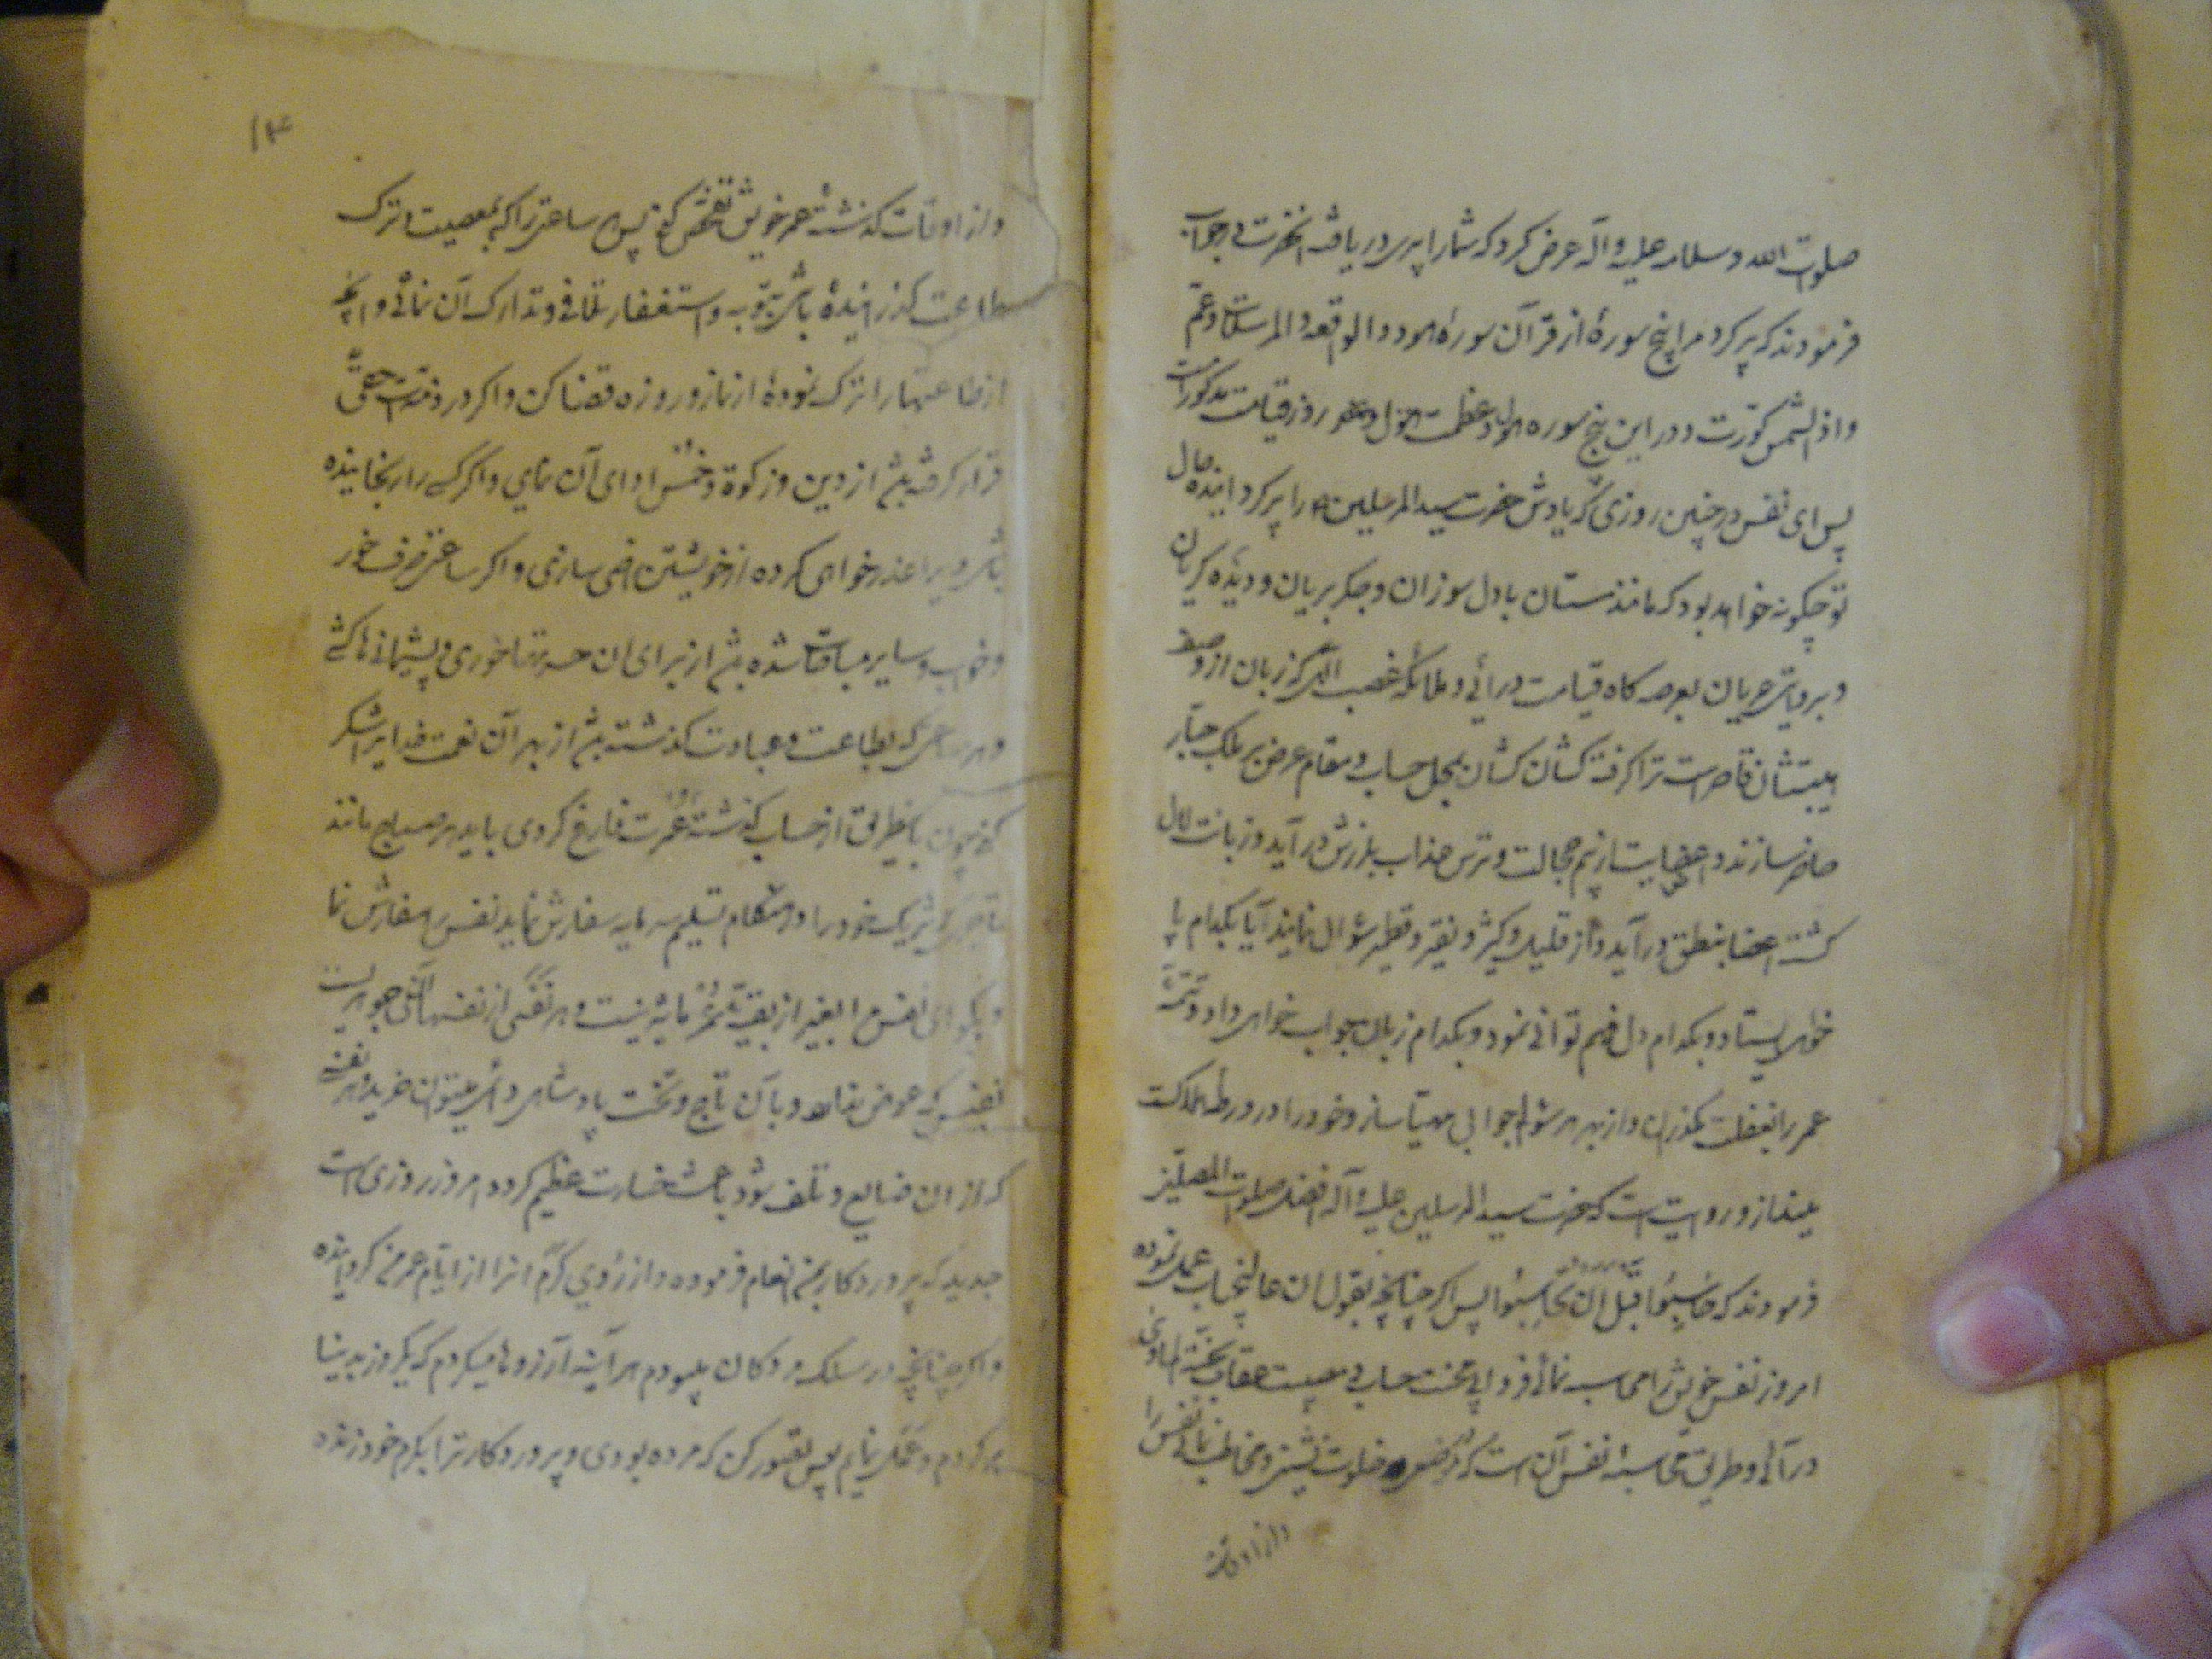 صلوات الله و سلامه علیه و آله عرض کرد که شما را پیری دریافته آنحضرت در جواب
فرمودند که پیر کرد مرا پنج سورهٔ از قرآن سورهٔ هود و الواقعه و المرسلات و عم
و اذا الشمس کورت و در این پنج سوره اهوال و عظمت روز قیامت مذکور است
پس ای نفس در چنین روزی که یادش حضرت سید المرسلین را پیر کرداینده حال
تو چکونه خواهد بود که مانند مستان با دل سوزان و جکر بریان و دیدهٔ کریان
و عریان بعرصه کاه قیامت درائی و ملائکه غضب الهی که زبان از وصف
هیبتشان قاصر است ترا کرفته کشان کشان بمحل حساب و مقام عرض بر ملک جبار
حاضر سازند و اعضایت از بیم خجالت و ترس عذاب بلرزش در آید و زبانت لال
کشته اعضا بنطق در آید و از قلیل و کثیر و نقیر و قطمیر سؤال نمایند آیا بکدام پا
خواهی ایستاد و بکدام دل فهم توانی نمود و بکدام زبان جواب خواهی داد و تتمهٔ
عمر را بغفلت مکذران و از بهر هر سؤال جوابی مهیا ساز و خود را در ورطهٔ هلاکت
مینداز و روایت است که حضرت سید المرسلین علیه و آله افضل صلوات المصلین
فرمودند که حاسبوا قبل ان تحاسبوا پس اکر چنانچه بقول ان عالیجناب عمل نموده
امروز نفس خویش را محاسبه نمائی فردا بی محنت حساب و مصیبت عقاب بجنة الماوی
در آئی و طریق محاسبهٔ نفس آن است که در خلوت نشینی و مخاطب نمائی نفس را
و از اوقات
۱۴
و از اوقات کذشتهٔ عمر خویش تفحص کنی پس هر ساعتی را که بمعصیت و ترک
طاعت کذرانیدهٔ باشی بتوبه و استغفار تلافی و تدارک آن نمائی و آنچه
از طاعتها را ترک نمودهٔ از نماز و روزه قضا کن و اکر در ذمت حقی
قرار کرفته باشد از دین و زکوة و خمس ادای آن نمای و اکر کسی را رنجانیده
باشی ویرا عذرخواهی کرده از خویشتن راضی سازی و اکر ساعتی صرف خور
و خواب و سایر مباحات شده باشد از برای ان حسرتها خوری و پشیمانیها کشی
و هر ساعتی که بطاعت و عبادت کذشته باشد از بهر آن نعمت خدای را شکر
کنی چون باینطریق از حساب کذشته عمرت فارغ کردی باید هر صباح مانند
تاجری که شریک خود را در هنکام تسلیم سرمایه سفارش نماید نفس را سفارش نما
و بکو ای نفس مرا بغیر از بقیهٔ عمر مایهٔ نیست و هر نفسی از نفسهای جوهریست
نفیس که عوض ندارد و با آن تاج و تخت پادشاهی دائمی میتوان خرید و هر نفسی
که از ان ضایع و تلف شود باعث خسارت عظیم کردد امروز روزی است
جدید که پروردکار بمن انعام فرموده و از روی کرم انرا از ایام عمر من کردانیده
و اکر چنانچه در سلک مردکان میبودم هر آینه آرزوها میکردم که یکروز بدنیا
بر کردم و عملی نمایم پس تصور کن که مرده بودی و پروردکار ترا بکرم خود زنده